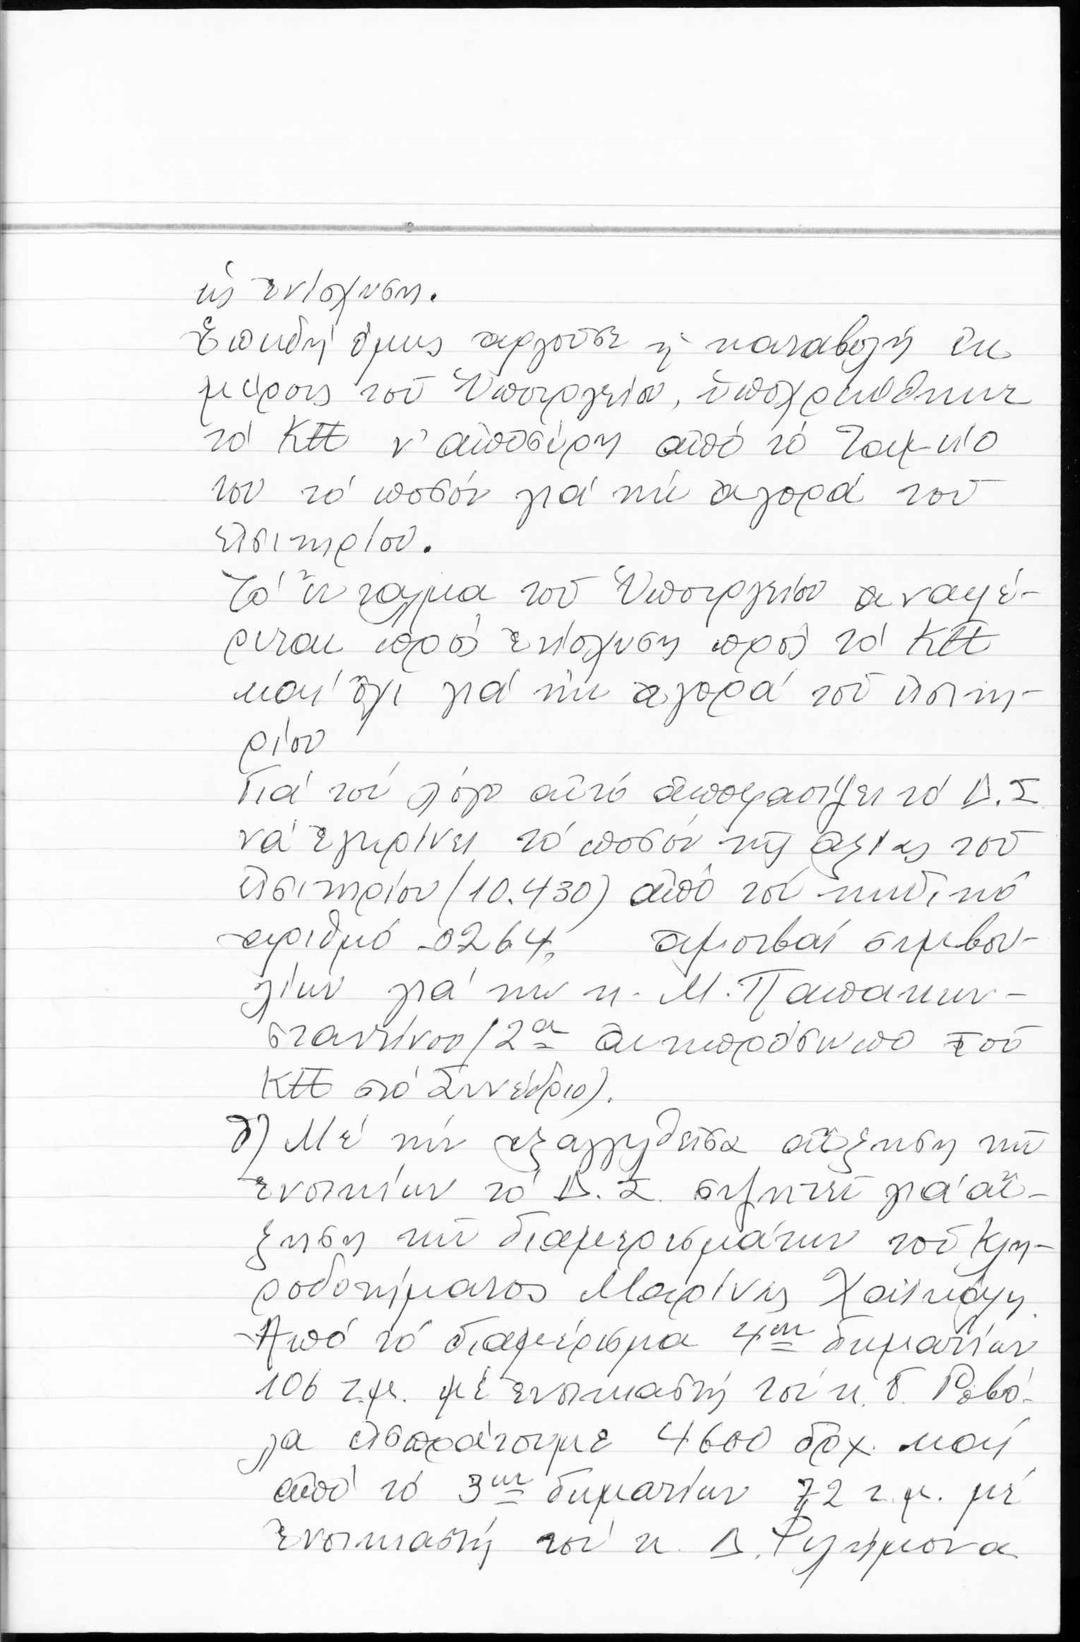 ὡς ἐνίσχυση.
Ἐπειδή ὅμως ἀργοῦσε ἡ καταβολή ἐκ
μέρους τοῦ Ὑπουργείου, ὑποχρεώθηκε
τό ΚΠ ν' ἀποσύρη ἀπό τό Ταμεῖο
του τό ποσόν γιά τήν ἀγορά τοῦ
εἰσιτηρίου.
Τό ἔνταλμα τοῦ Ὑπουργείου ἀναφέ-
ρεται πρός ἐνίσχυση πρός τό ΚΠ
καί ὄχι γιά τήν ἀγορά τοῦ εἰσιτη-
ρίου
Γιά τόν λόγο αὐτό ἀποφασίζει τό Δ.Σ
νά ἐγκρίνει τό ποσόν τῆς ἀξίας τοῦ
εἰσιτηρίου (10.430) ἀπό τόν κωδικό
ἀριθμό 0264, ἀμοιβαί συμβου-
λίων γιά τήν κ. Μ. Παπακων-
σταντίνου (2α ἀντιπρόσωπο τοῦ
ΚΠ στό Συνέδριο).
δ) Μέ τήν ἐξαγγελθεῖσα αὔξηση τῶν
ἐνοικίων τό Δ.Σ. συζητεῖ γιά αὔ-
ξηση τῶν διαμερισμάτων τοῦ Κλη-
ροδοτήματος Μαρίνας
Ἀπό τό διαμέρισμα 4ων δωματίων
106 τ.μ. μέ ἐνοικιαστή τόν κ.
εἰσπράττουμε 4600 δρχ. καί
ἀπό τό 3ων δωματίων 72 τ.μ. μέ
ἐνοικιαστή τόν κ. Δ. Φιλήμονα